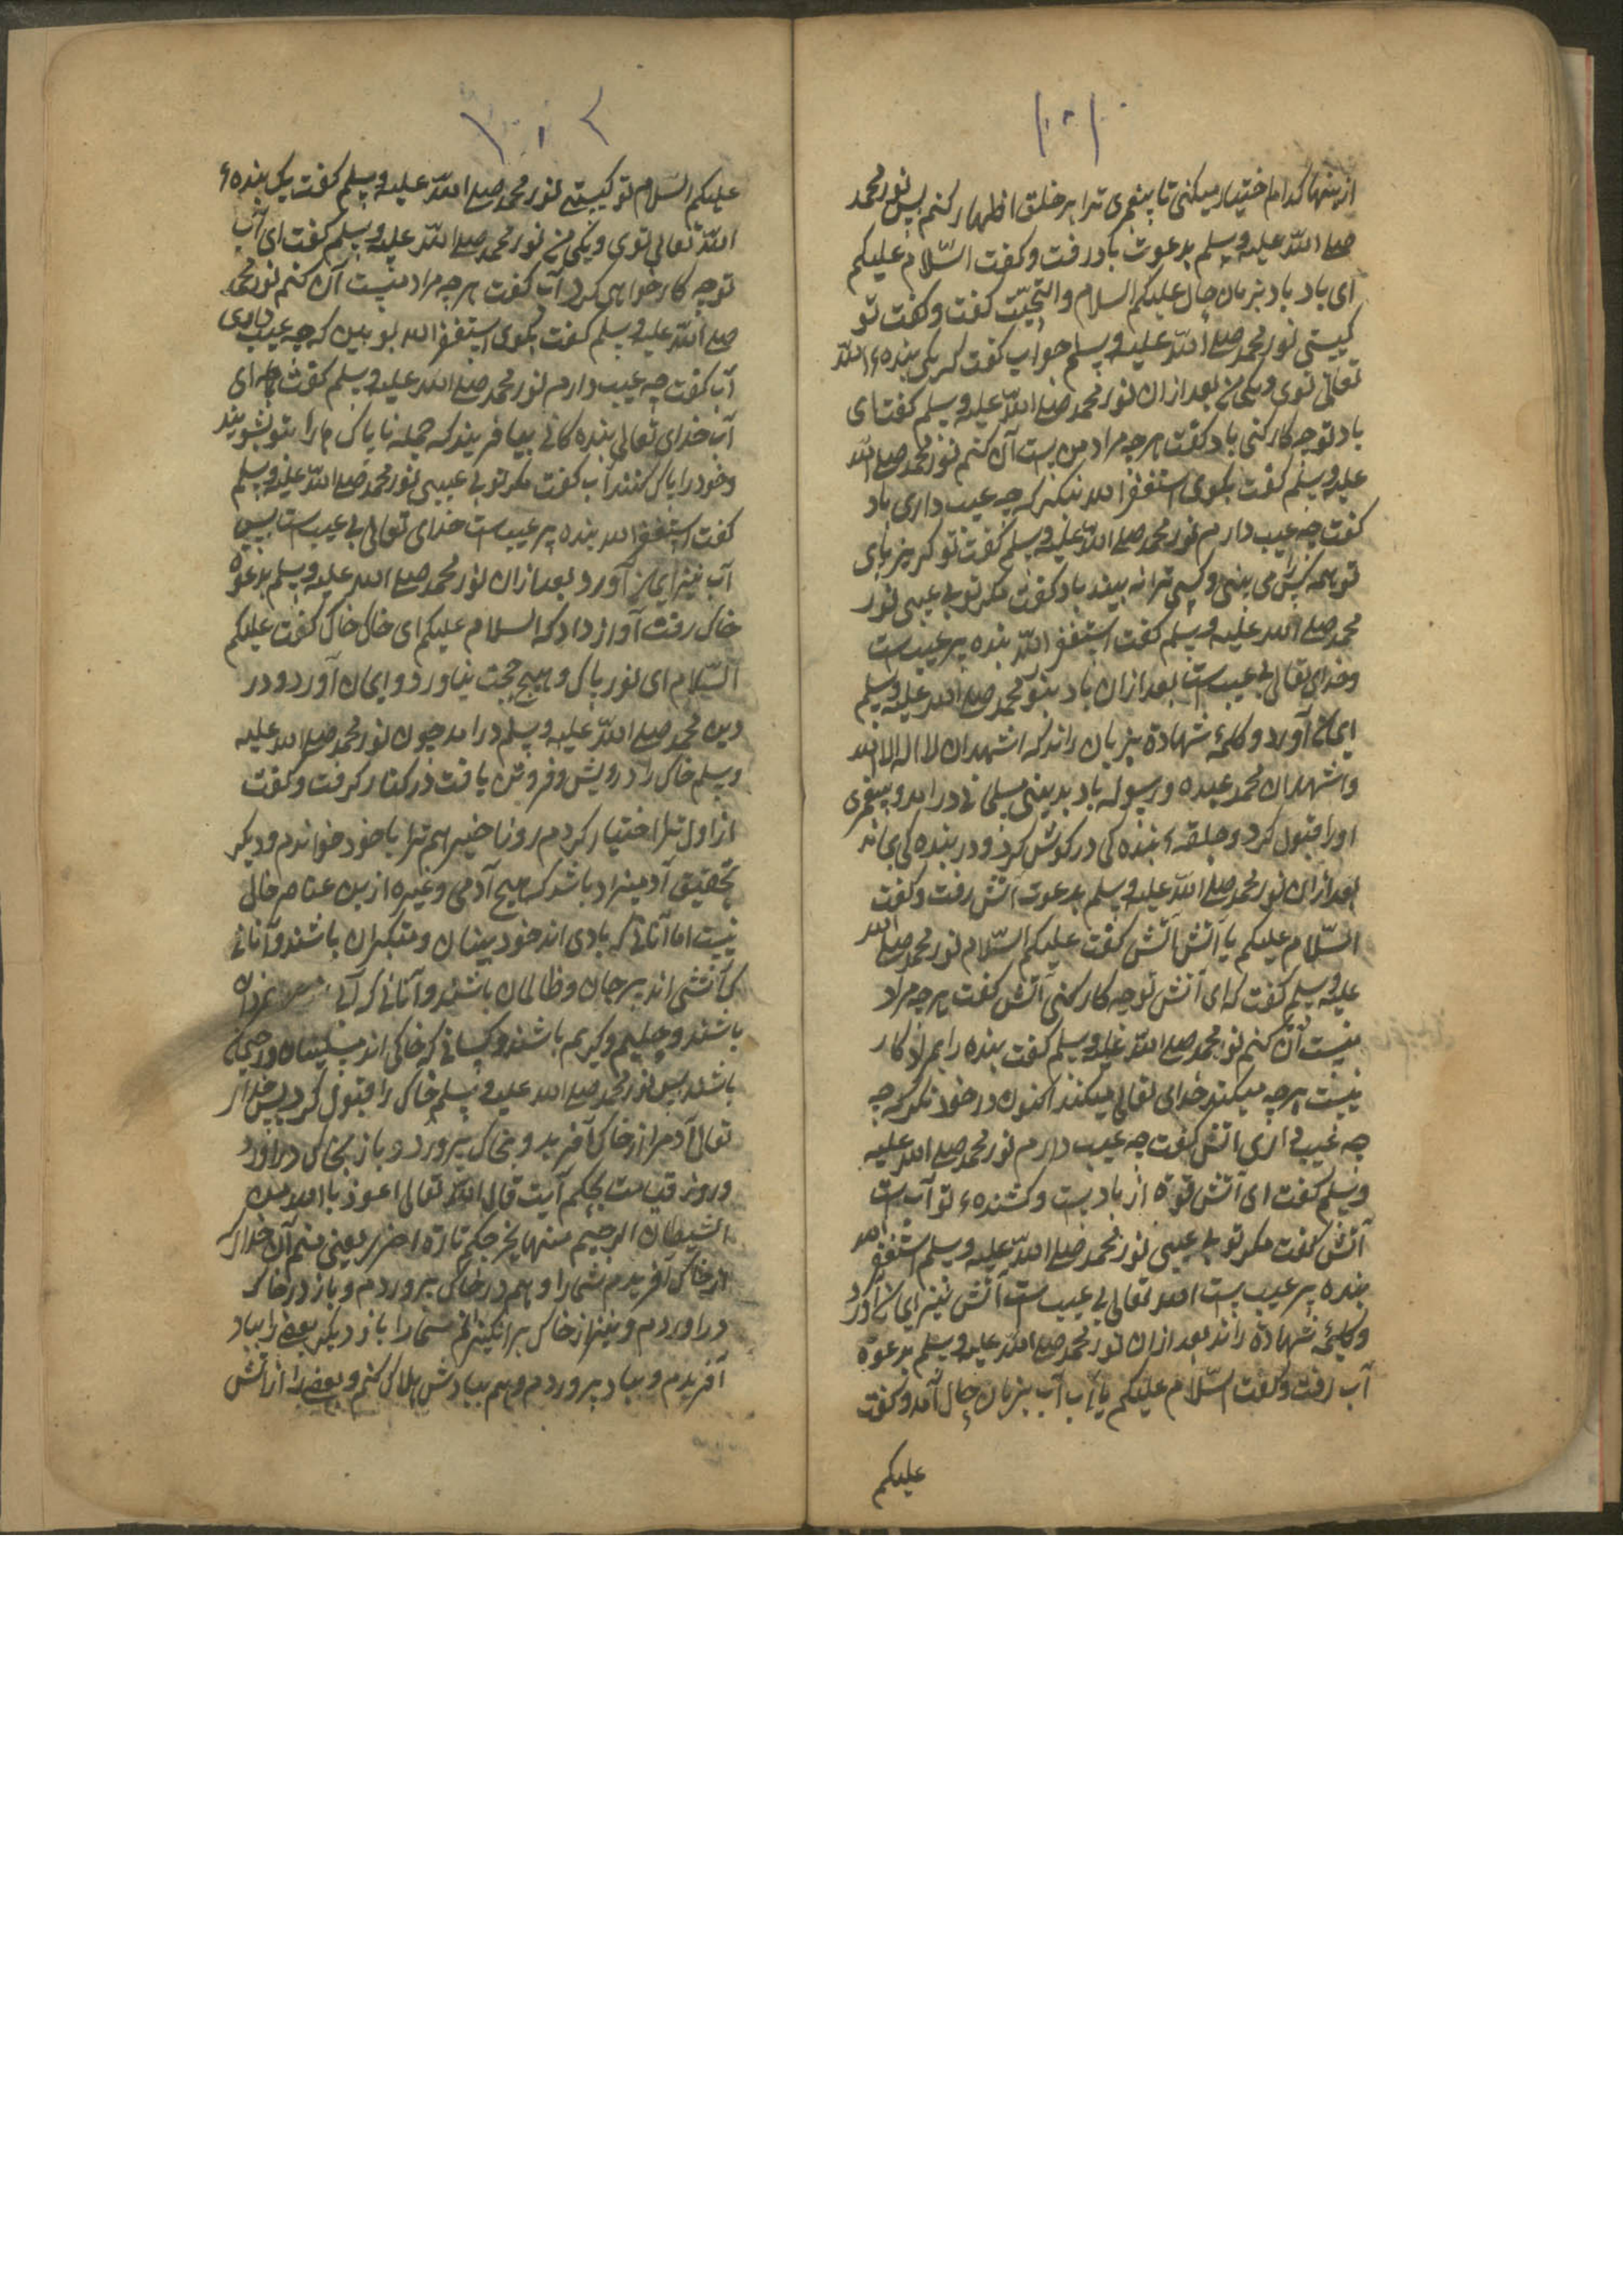 ۱۰۱
ازینها کدام اختیار میکنی تا پیغمبری ترا بر خلق اظهار کنم پس نور محمد
صلی الله علیه وسلم بدعوت باد رفت وگفت السّلام علیکم
ای باد باد بزبان حال علیکم السلام والتحیّت گفت وگفت تو
کیستی نور محمد صلی الله علیه وسلم جواب گفت که یکی بندهٔ الله
تعالی توی ویکی من بعد ازان نور محمد صلی الله علیه وسلم گفت ای
باد تو چه کار کنی باد گفت هر چه مراد من است آن کنم نور محمد صلی الله
علیه وسلم گفت بگوی استغفر الله بنگر که چه عیب داری باد
گفت چه عیب دارم نور محمد صلی الله علیه وسلم گفت تو گریزپای
تو همه کس را می بینی وکسی ترا نه بیند باد گفت مگر تو بی عیبی نور
محمد صلی الله علیه وسلم گفت استغفر الله بنده پر عیب ست
وخدای تعالی بی عیب ست بعد ازان باد بنور محمد صلی الله علیه وسلم
ایمان آورد وکلمهٔ شهادة بزبان راند که اشهد ان لا اله الا الله
واشهد ان محمد عبده ورسوله باد بدین مسلمانی درامد وپیغمبری
اورا قبول کرد وحلقهٔ بنده کی در گوش کرد ودر بنده کی بماند
بعد ازان نور محمد صلی الله علیه وسلم بدعوت آتش رفت وگفت
السّلام علیکم یا آتش آتش گفت علیکم السّلام نور محمد صلی الله
علیه وسلم گفت که ای آتش تو چه کار کنی آتش گفت هر چه مراد
منست آن کنم نور محمد صلی الله علیه وسلم گفت بنده را بمراد کار
نیست هر چه میکند خدای تعالی میکند اکنون در خود نگر که چه
چه عیب داری آتش گفت چه عیب دارم نور محمد صلی الله علیه
وسلم گفت ای آتش قوة از باد ست وکشندهٔ تو آب ست
آتش گفت مگر تو بی عیبی نور محمد صلی الله علیه وسلم استغفر الله
بنده پر عیب ست الله تعالی بی عیب ست آتش نیز ایمان آورد
وکلمهٔ شهادة راند بعد ازان نور محمد صلی الله علیه وسلم بدعوة
آب رفت وگفت السّلام علیکم یا آب آب بزبان حال آمد وگفت
علیکم
۱۰۲
علیکم السّلام تو کیستی نور محمد صلی الله علیه وسلم گفت یک بندهٔ
الله تعالی توی ویکی من نور محمد صلی الله علیه وسلم گفت ای آب
تو چه کار خواهی کرد آب گفت هر چه مراد منست آن کنم نور محمد
صلی الله علیه وسلم گفت بگوی استغفر الله بو بین که چه عیب داری
آب گفت چه عیب دارم نور محمد صلی الله علیه وسلم گفت ای
آب خدای تعالی بنده کانی بیافریند که جمله ناپاک هارا بتو بشویند
وخودرا پاک کنند آب گفت مگر تو بی عیبی نور محمد صلی الله علیه وسلم
گفت استغفر الله بنده پر عیب ست خدای تعالی بی عیب ست پس
آب نیز ایمان آورد بعد ازان نور محمد صلی الله علیه وسلم بدعوة
خاک رفت آواز داد که السلام علیکم ای خاک خاک گفت علیکم
السّلام ای نور پاک وهیچ حجت نیاورد وایمان آورد ودر
دین محمد صلی الله علیه وسلم درامد چون نور محمد صلی الله علیه
وسلم خاک را درویش وفروتن یافت در کنار گرفت وگفت
از اول ترا اختیار کردم روز اخیر هم ترا باخود خوانم ودیگر
تحقیق آدمیزاد باشد که هیچ آدمی وغیره ازین عناصر خالی
نیست اما آنانی که بادی اند خود بینان ومتکبران باشند وآنانی
که آتشی اند بیرحمان وظالمان باشند وآنانی که آبی
باشند وحلیم وکریم باشند وکسانی که خاکی اند مسکینان
باشند پس نور محمد صلی الله علیه وسلم خاک را قبول کرد پس خدای
تعالی آدم را از خاک آفرید وبخاک پرورد وباز بخاک دراورد
وروز قیامت بحکم آیت قال الله تعالی اعوذ بالله من
الشیطان الرجیم منها نخرجکم تارة اخری یعنی منم آن خدای که
از خاک آفریدم شمارا وهم در خاک پروردم وباز در خاک
دراوردم ونیز از خاک برانگیزانم شمارا باز دیگر بعضی را بباد
آفریدم وبباد پروردم وهم ببادش هلاک کنم وبعضی را از آتش